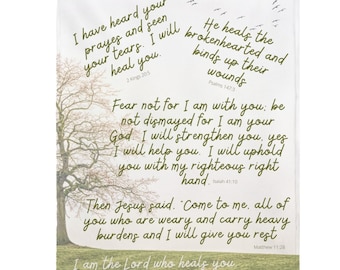 I have heard your
prayer and seen
your tears. I will
heal you.
2 Kings 20:5
He heals the
brokenhearted and
binds up their
wounds.
Psalms 147:3
Fear not for I am with you; be
not dismayed for I am your
God. I will strengthen you, yes
I will help you, I will uphold
you with my righteous right
hand.
Isaiah 41:10
Then Jesus said, "Come to me, all of
you who are weary and carry heavy
burdens and I will give you rest
Matthew 11:28
I am the Lord who heals you